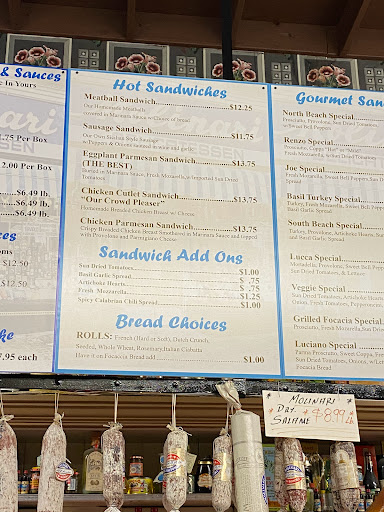 & Sauces
e In Yours
.75 Per Box
2.00 Per Box
$6.49 lb.
$6.49 lb.
$6.49 lb.
$12.50
.95 each
Hot Sandwiches
Meatball Sandwich $12.25
Our Homemade Meatballs
covered in Marinara Sauce w/Choice of bread
Sausage Sandwich $11.75
Our Own Sicilian Style Sausage
w/Peppers & Onions sauteed in wine and garlic
Eggplant Parmesan Sandwich $13.75
(THE BEST)
Buried in Marinara Sauce, Fresh Mozzarella, w/Imported Sun Dried
Tomatoes
Chicken Cutlet Sandwich $13.75
"Our Crowd Pleaser"
Homemade Breaded Chicken Breast w/ Cheese
Chicken Parmesan Sandwich $13.75
Crispy Breaded Chicken Breast Smothered in Marinara Sauce and topped
with Provolone and Parmigiano Cheese
Sandwich Add Ons
Sun Dried Tomatoes $1.00
Basil Garlic Spread $ .75
Artichoke Hearts $ .75
Fresh Mozzarella $1.25
Spicy Calabrian Chili Spread $1.00
Bread Choices
ROLLS: French (Hard or Soft), Dutch Crunch,
Seeded, Whole Wheat, Rosemary, Italian Ciabatta
Have it on Focaccia Bread add $1.00
Gourmet San
North Beach Special
Prosciutto, Provolone, Sun Dried Tomatoes
w/Sweet Bell Peppers
Renzo Special
Fresh Mozzarella, w/Sun Dried Tomatoes
Joe Special
Basil Turkey Special
Turkey, Fresh Mozarella, Sweet Bell
Garlic Spread
South Beach Special
Turkey, Provolone, Artichoke Hearts,
and Basil Garlic Spread
Lucca Special
Mortadella, Provolone, Sweet Bell Peppers
Sun Dried Tomatoes, & Lettuce
Veggie Special
Sun Dried Tomatoes, Artichoke Hearts
Onion, Fresh Tomatoes, Pepperoncini
Grilled Focacia Special
Prosciutto, Fresh Mozarella, Sun Dried
Luciano Special
Parma Prosciutto, Sweet Coppa, Fresh
Sun Dried Tomatoes, Onions, w/Lettuce
Focaccia Bread
MOLINARI
DRY $8.99 lb
SALAME